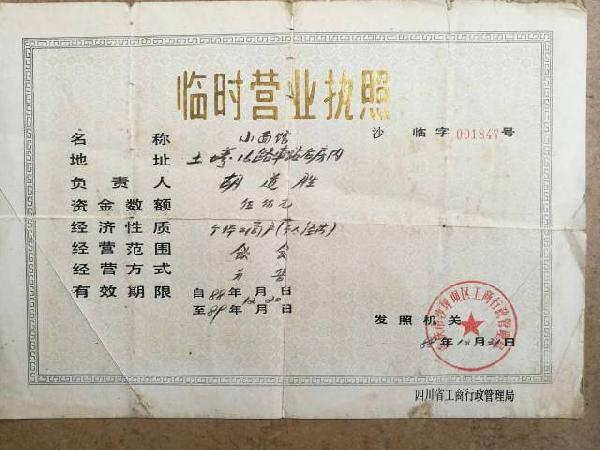 临时营业执照
沙 临字 001847 号
名称 小面馆
地址 土湾
负责人 胡道胜
资金数额 伍佰元
经济性质
经营范围 饮食
经营方式
有效期限 自88年 月 日
至89年12月30日
重庆市沙坪坝区工商行政管理局
发照机关
88年12月31日
四川省工商行政管理局